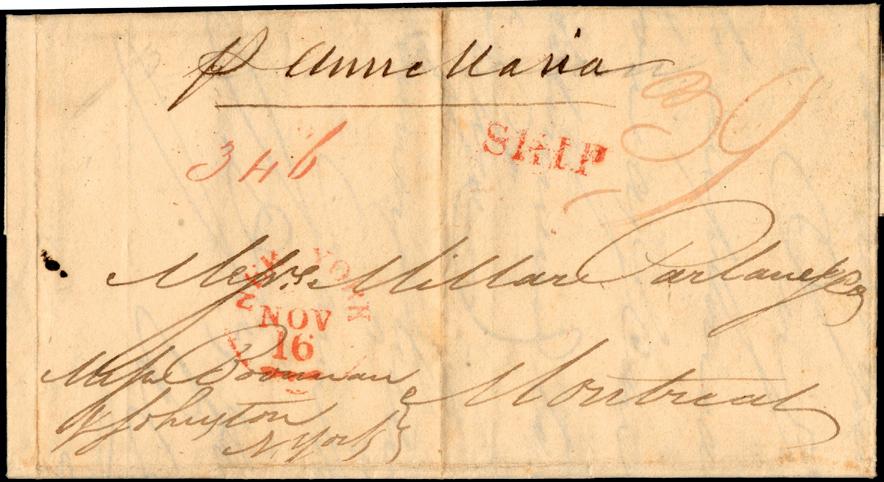 p Anne Maria
SHIP
39
346
Messrs. Millar Parlane & Co
NEW YORK
NOV
16
Messrs Boorman
& Johnston
N. York
Montreal